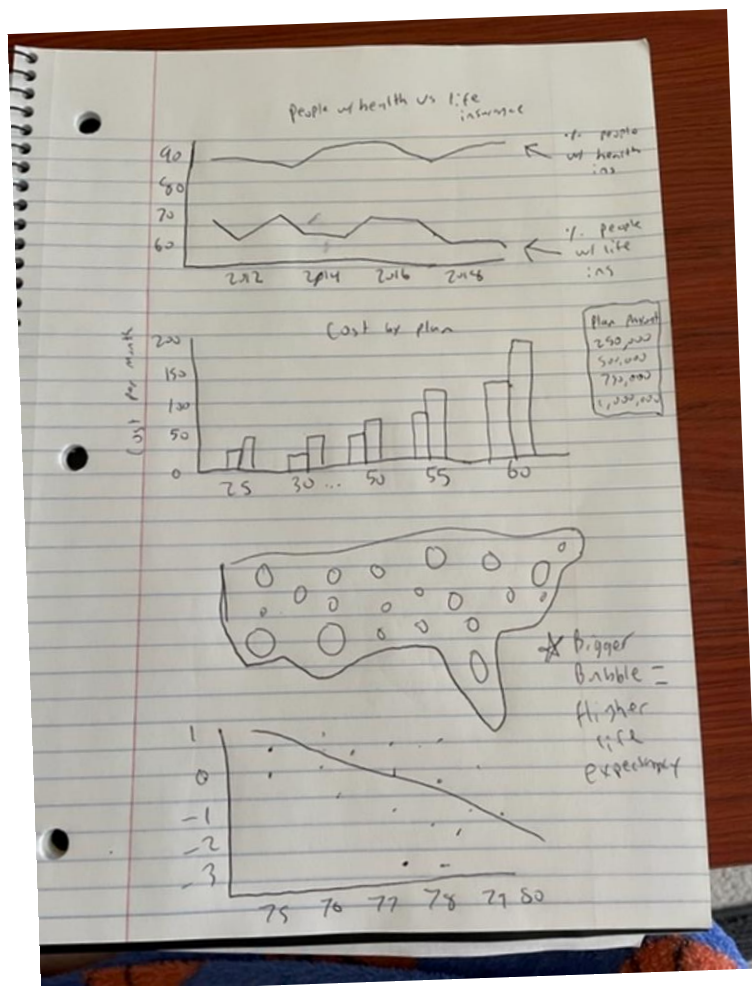 People w/ health vs life
insurance
90
80
70
60
% people
w/ health
ins
% people
w/ life
ins
2012 2014 2016 2018
Cost by plan
Cost per month
200
150
100
50
0
25 30... 50 55 60
Plan Amount
250,000
500,000
750,000
1,000,000
☆ Bigger
Bubble =
Higher
life
expectancy
1
0
-1
-2
-3
75 76 77 78 79 80